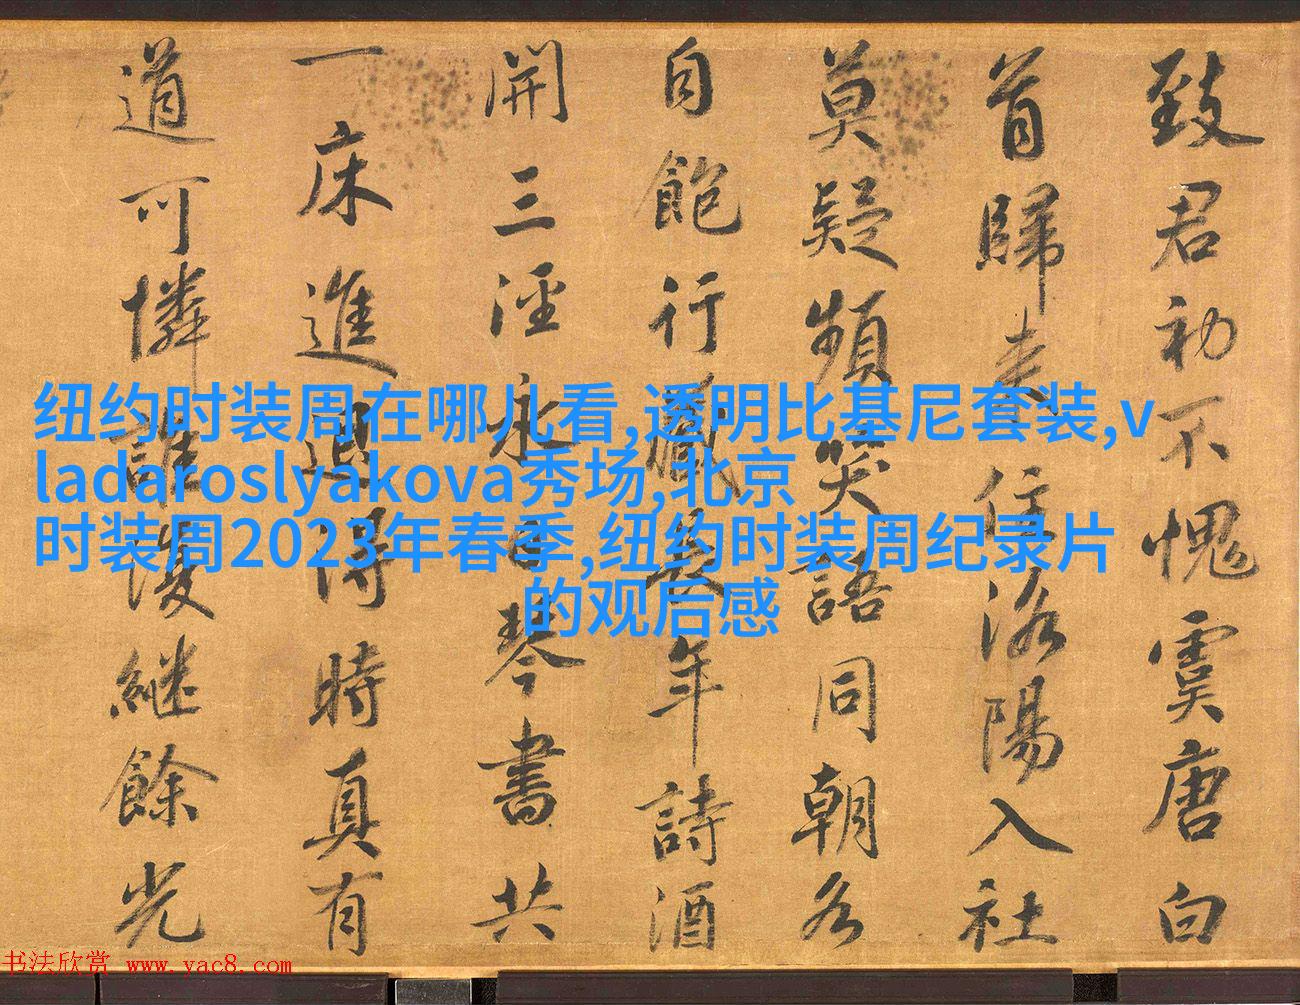 致君初不愧虞唐白
首歸来住洛陽入社
莫疑頻笑語同朝各
自飽行藏長年詩酒
開三徑永日琴書共
一床進退得時真有
道可憐誰復繼餘光
纽约时装周在哪儿看,透明比基尼套装,v
ladaroslyakova秀场,北京
时装周2023年春季,纽约时装周纪录片
的观后感
书法欣赏 www.yac8.com